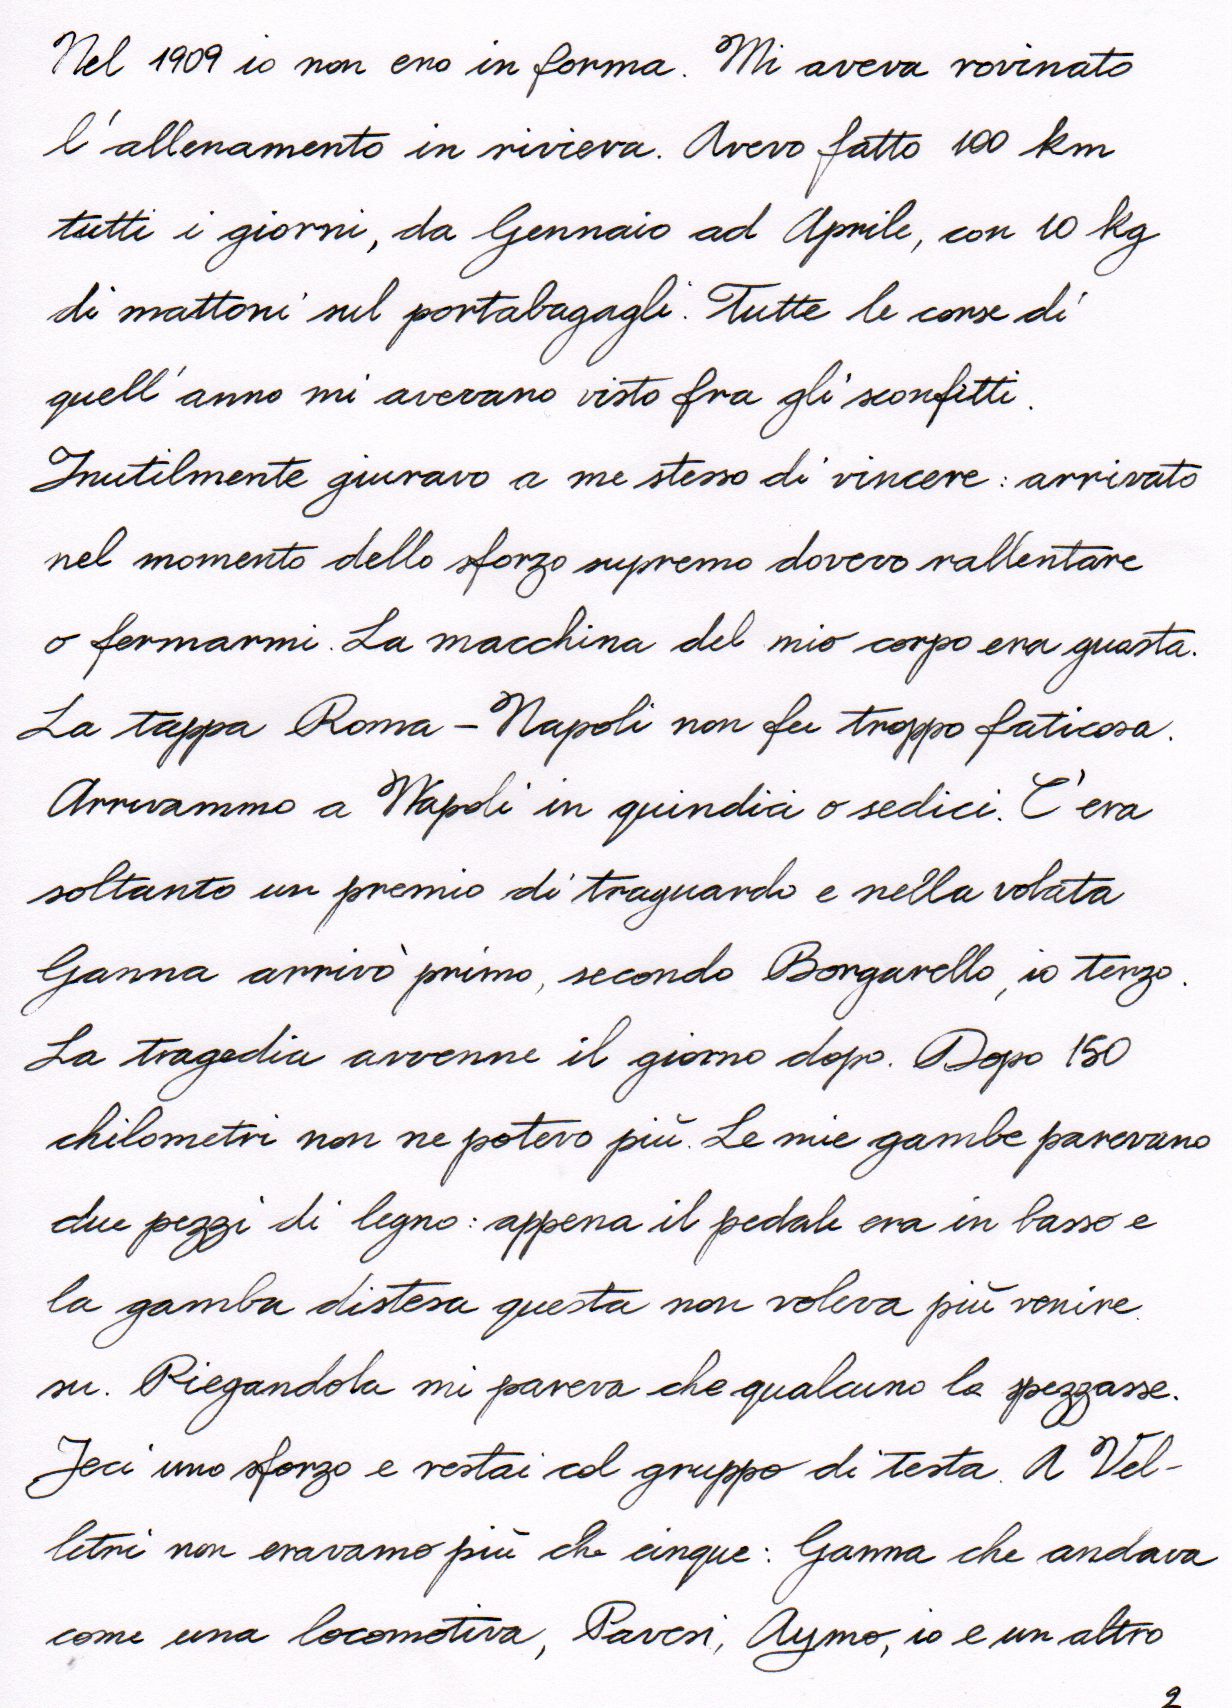 Nel 1909 io non ero in forma. Mi aveva rovinato
l'allenamento in riviera. Avevo fatto 100 km
tutti i giorni, da Gennaio ad Aprile, con 10 kg
di mattoni sul portabagagli. Tutte le corse di
quell'anno mi avevano visto fra gli sconfitti.
Inutilmente giuravo a me stesso di vincere: arrivato
nel momento dello sforzo supremo dovevo rallentare
o fermarmi. La macchina del mio corpo era guasta.
La tappa Roma - Napoli non fu troppo faticosa.
Arrivammo a Napoli in quindici o sedici. C'era
soltanto un premio di traguardo e nella volata
Ganna arrivò primo, secondo Borgarello, io terzo.
La tragedia avvenne il giorno dopo. Dopo 150
chilometri non ne potevo più. Le mie gambe parevano
due pezzi di legno: appena il pedale era in basso e
la gamba distesa questa non voleva più venire
su. Piegandola mi pareva che qualcuno la spezzasse.
Feci uno sforzo e restai col gruppo di testa. A Vel-
letri non eravamo più che cinque: Ganna che andava
come una locomotiva, Pavesi, Aymo, io e un altro
2